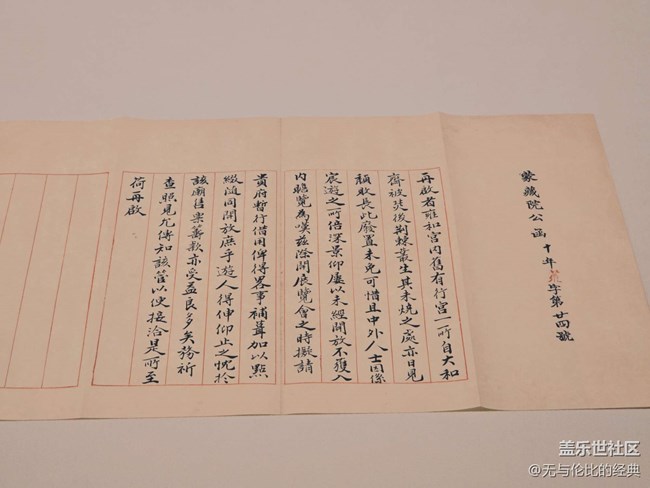 蒙藏院公函十年 字第廿四號
再啟者雍和宮內舊有行宮一所自大和
齋被焚後荊棘叢生其未燒之處亦日見
頹敗長此廢置未免可惜且中外人士因係
宸遊之所倍深景仰屢以未經開放不獲入
內瞻覽為嘆茲際開展覽會之時擬請
貴府暫行借用俾得略事補葺加以點
綴隨同開放庶乎遊人得伸仰止之忱於
該廟香業籌款亦受益良多矣務祈
查照見允傳知該管以便接洽是所至
荷再啟
盖乐世社区
@无与伦比的经典